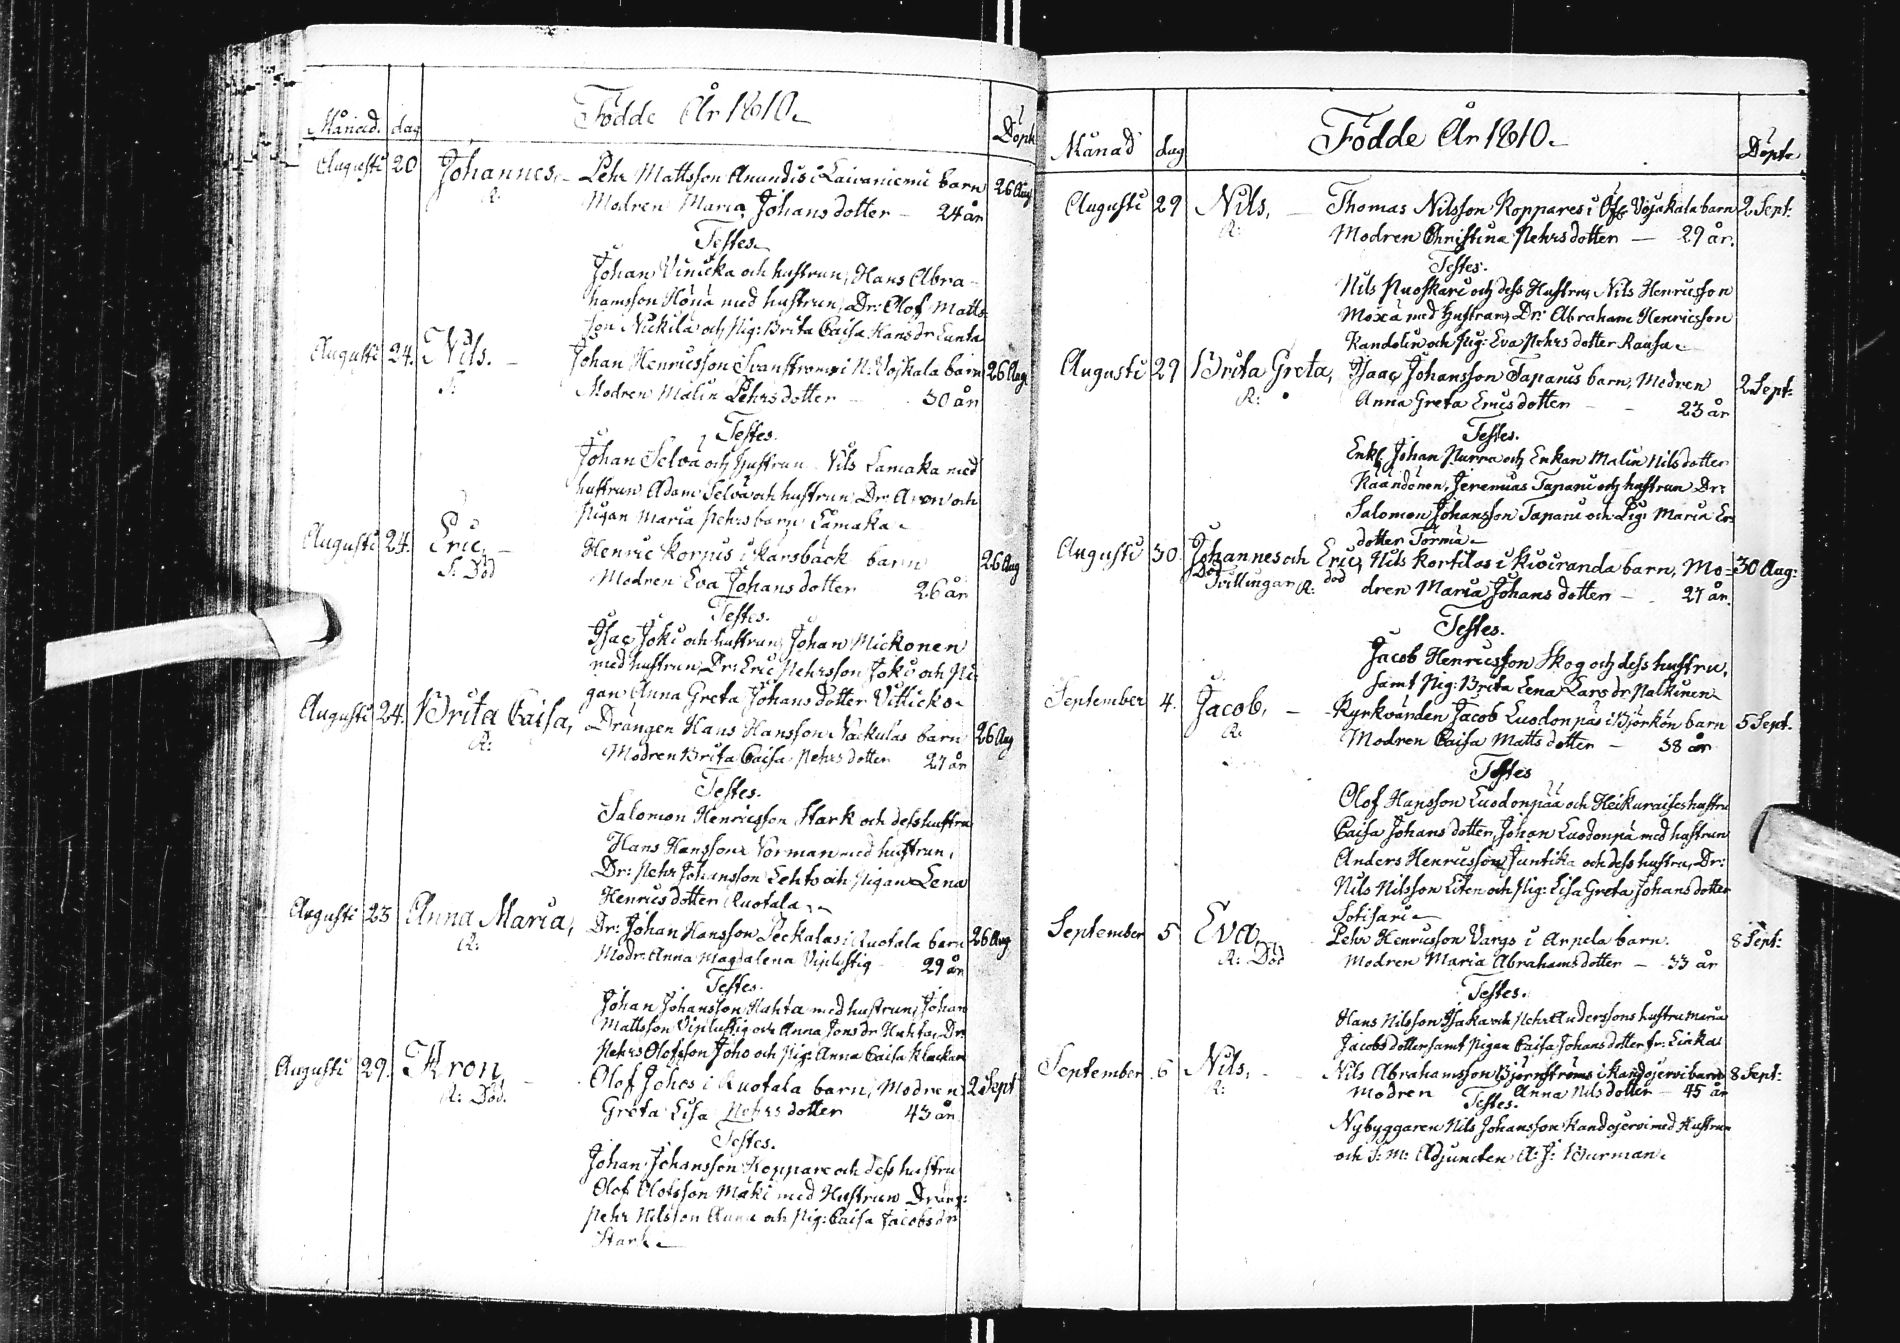 Födde År 1810.
Månad. dag Döpt
Augusti 20 Johannes, Pehr Mattsson Anundis i Laivaniemi barn 26 Aug
R: Modren Maria Johansdotter — 24 år
Testes
Johan Vinicka och hustrun, Hans Abra-
hamsson Hönä med hustrun, Dr: Olof Matts-
son Nickilä och Pig: Brita Caisa Hansdr
Augusti 24. Nils. — Johan Henricsson Svanströms i N: Vojkala barn 26 Aug
Modren Malin Pehrsdotter — 30 år
Testes.
Johan Selvä och hustrun Nils Lamaka med
hustrun Adam Selvä och hustrun, Dr: Aron och
Pigan Maria Pehrs barn Lämaka
Augusti 24. Eric, — Henric Korpus i Karsbäck barn 26 Aug
Död Modren Eva Johansdotter 26 år
Testes.
Isac Joki och hustrun, Johan Mickonen
med hustrun, Dr: Eric Pehrsson Joki och Pi-
gan Anna Greta Johansdotter Vitticko
Augusti 24. Brita Caisa, Drängen Hans Hansson Vackulas barn 26 Aug
R: Modren Brita Caisa Pehrsdotter 27 år
Testes.
Salomon Henricsson Stark och dess hustru
Hans Hansson Vorman med hustrun,
Dr: Pehr Johansson Lehto och Pigan Lena
Henricsdotter Ruotala
Augusti 23 Anna Maria, Dr: Johan Hansson Peckalas i Ruotala barn 26 Aug
R: Modr: Anna Magdalena Viplustig 29 år
Testes.
Johan Johansson Hahta med hustrun, Johan
Mattsson Viplustig och Anna Jonsdr Huhta, Dr:
Pehrs Olofsson Joho och Pig: Anna Caisa
Augusti 29. Aron Olof Johos i Ruotala barn, Modren 2 Sept
R: Död. Greta Lisa Pehrsdotter 43 år
Testes.
Johan Johansson Koppare och dess hustru
Olof Olofsson Mäki med Hustrun Dräng:
Pehr Nilsson Anna och Pig: Caisa Jacobsdr
Stark
Födde År 1810.
Månad dag Döpte
Augusti 29 Nils, — Thomas Nilsson Koppares i Öfr Vojakala barn 2 Sept:
R: Modren Christina Pehrsdotter — 29 år.
Testes.
Nils Puoskari och dess Hustru, Nils Henricsson
Moxä med Hustrun, Dr: Abraham Henricsson
Kandelin och Pig: Eva Pehrsdotter Rausa
Augusti 29 Brita Greta, Isaac Johansson Tapanis barn, Modren 2 Sept:
R: Anna Greta Ericsdotter — 23 år
Testes.
Enkl: Johan Purra och Enkan Malin Nilsdotter
Räändönen, Jeremias Tapani och hustrun Dr:
Salomon Johansson Tapani och Pig: Maria Er:
dotter Törmä
Augusti 30 Johannes och Eric, Nils Kortilas i Kiviranda barn, Mo- 30 Aug:
Död Tvillingar R: död dren Maria Johansdotter — 27 år.
Testes.
Jacob Henricsson Skog och dess hustru,
samt Pig: Brita Lena Larsdr Palkinen
September 4. Jacob, — Kyrkvärden Jacob Luodonpäs i Björkön barn 5 Sept:
R: Modren Caisa Mattsdotter — 38 år
Testes
Olof Hansson Luodonpää och Heikuraises hustru
Caisa Johansdotter, Johan Luodonpä med hustrun
Anders Henricsson Juntika och dess hustru, Dr:
Nils Nilsson Liten och Pig: Lisa Greta Johansdotter
Sotisari
September 5 Eva, Pehr Henricsson Vargs i Arpela barn. 8 Sept:
R: Död Modren Maria Abrahamsdotter — 33 år
Testes.
Hans Nilsson Isaka och Pehr Anderssons hustru Maria
Jacobsdotter samt Pigan Caisa Johansdotter
September 6 Nils, — Nils Abrahamsson Björnströms i Kandojervi barn 8 Sept:
R: Modren Anna Nilsdotter — 45 år
Testes.
Nybyggaren Nils Johansson Kandojervi med Hustrun
och S: M: Adjuncten A: J: Burman.